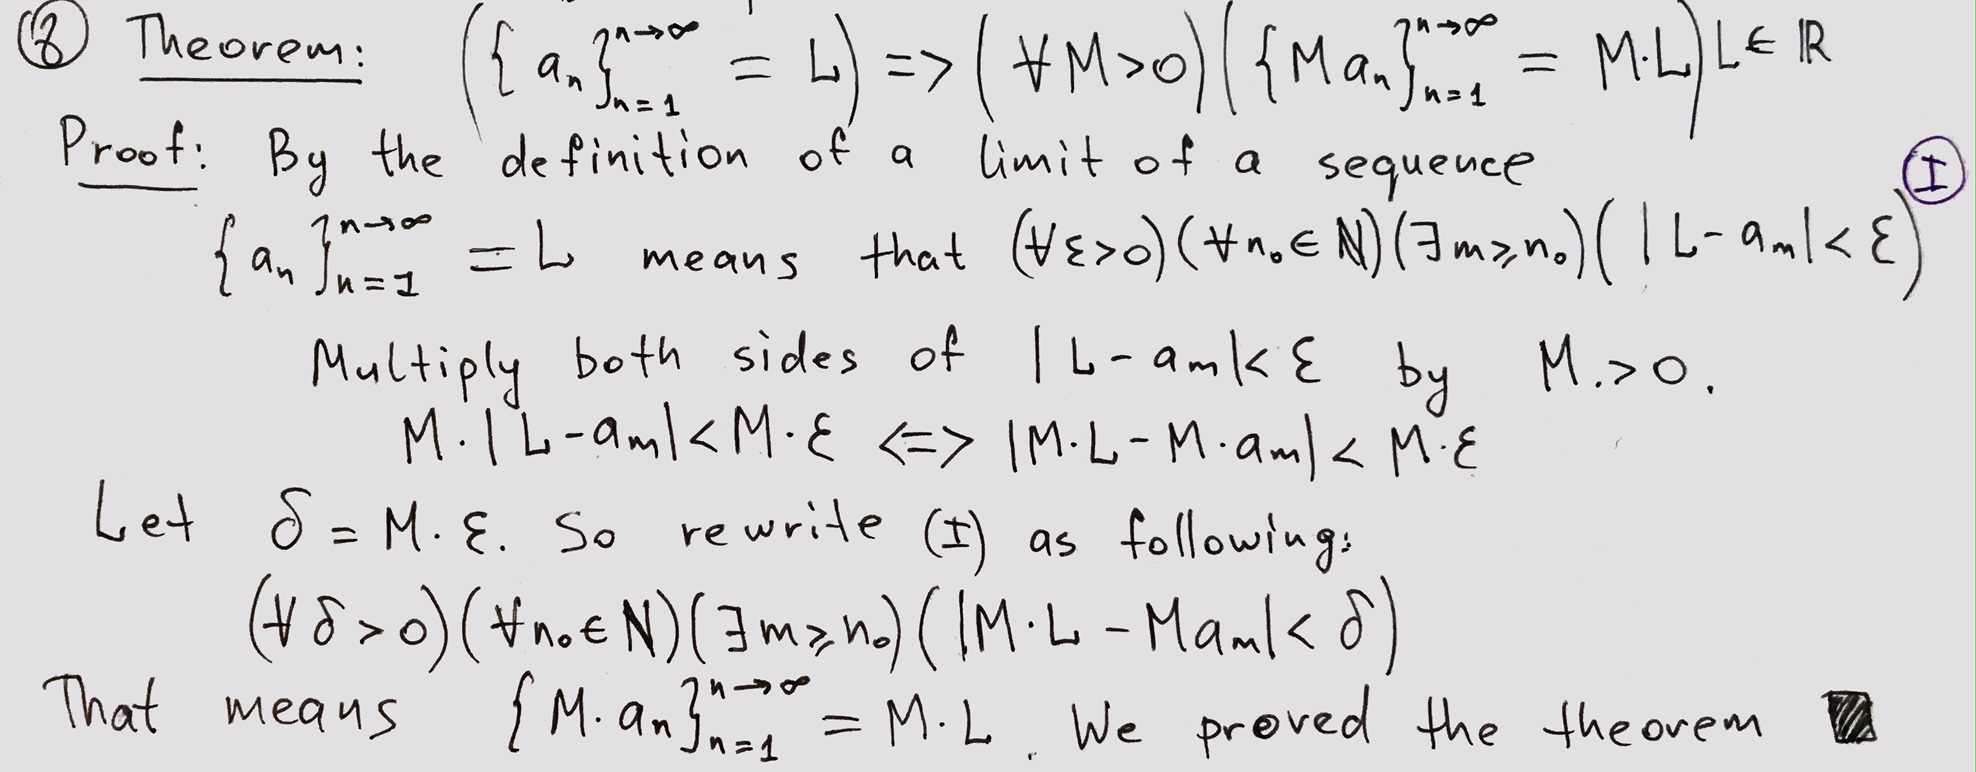 ⑧ Theorem: ({a_n}_{n=1}^{n→∞} = L) => (∀M>0)({Ma_n}_{n=1}^{n→∞} = M·L) L∈ℝ
Proof: By the definition of a limit of a sequence
{a_n}_{n=1}^{n→∞} = L means that (∀ε>0)(∀n₀∈ℕ)(∃m≥n₀)(|L-a_m|<ε) Ⓘ
Multiply both sides of |L-a_m|<ε by M.>0.
M·|L-a_m|<M·ε <=> |M·L-M·a_m|< M·ε
Let δ=M·ε. So rewrite (I) as following:
(∀δ>0)(∀n₀∈ℕ)(∃m≥n₀)(|M·L-Ma_m|<δ)
That means {M·a_n}_{n=1}^{n→∞} = M·L. We proved the theorem ■